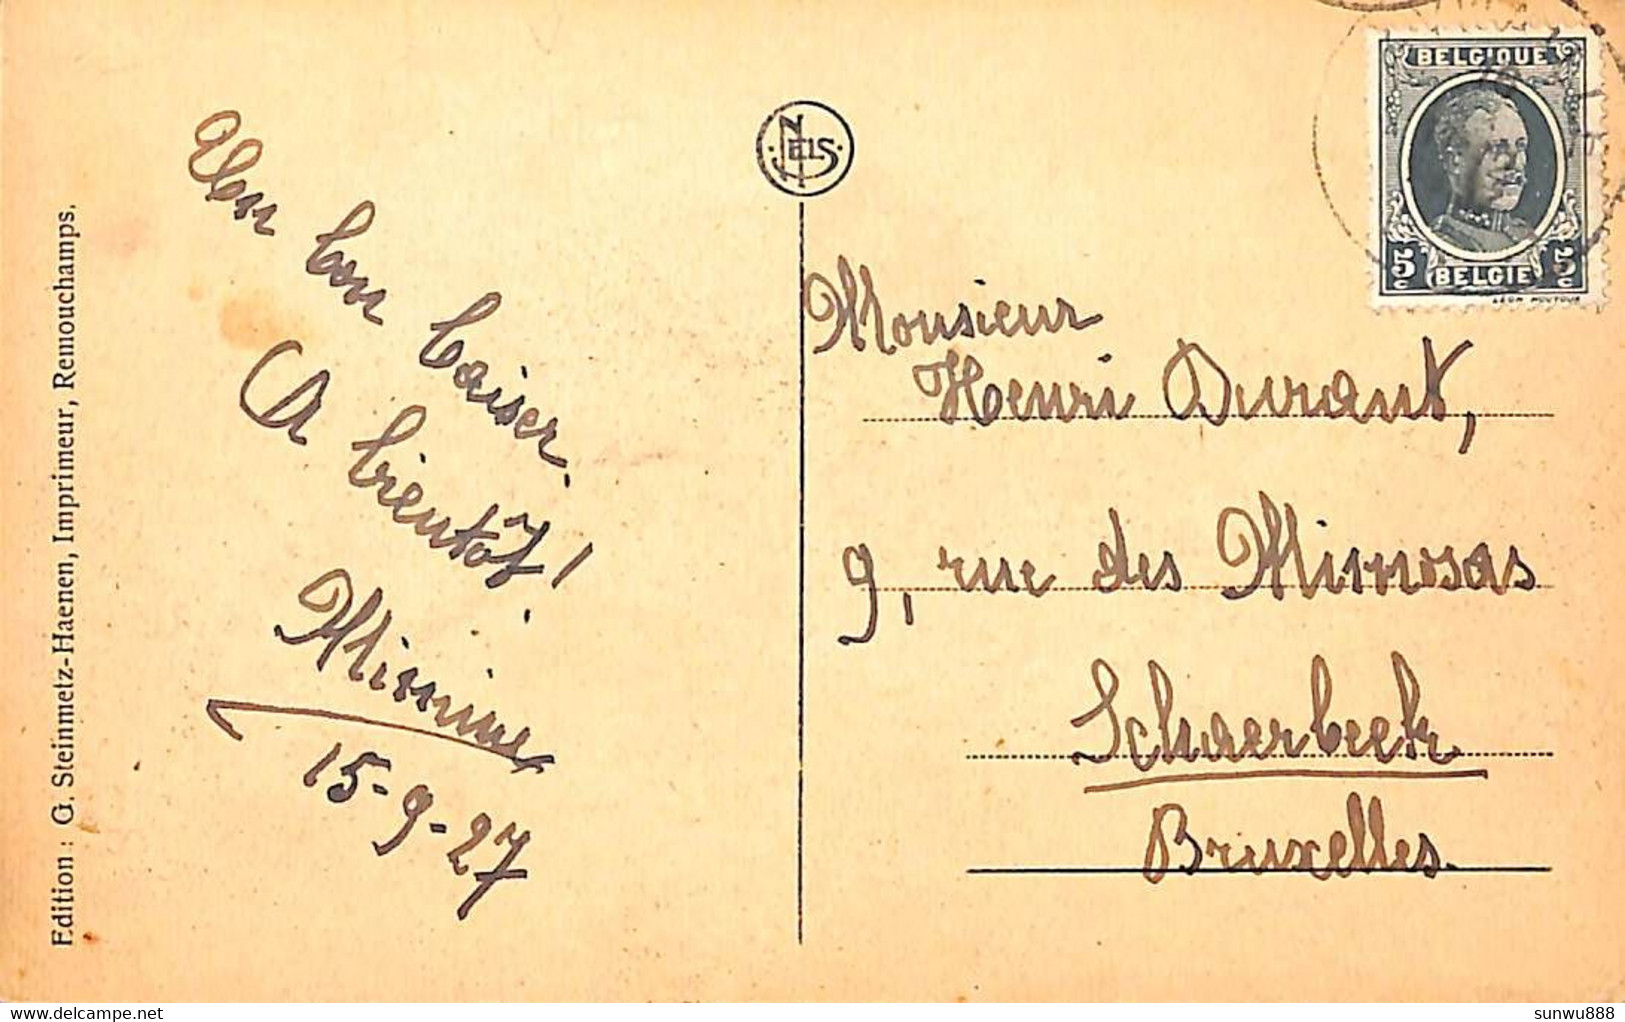 Edition : G. Steinmetz-Haenen, Imprimeur, Remouchamps.
Un bon baiser.
A bientôt!
Mimine
15-9-27
Nels
BELGIQUE
5c 5c
BELGIE
LÉON HOUYOUX
Monsieur
Henri Durant,
9, rue des Mimosas
Schaerbeek
Bruxelles.
sunwu888